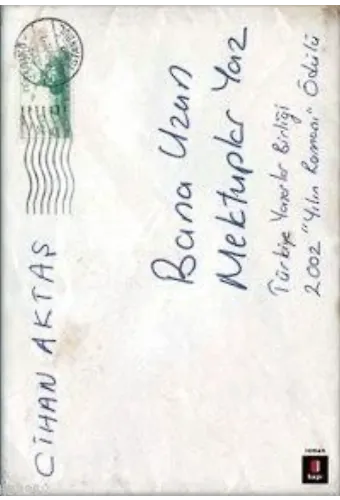 CİHAN AKTAŞ
Bana Uzun
Mektuplar Yaz
Türkiye Yazarlar Birliği
2002 "Yılın Romanı" Ödülü
roman
kapı